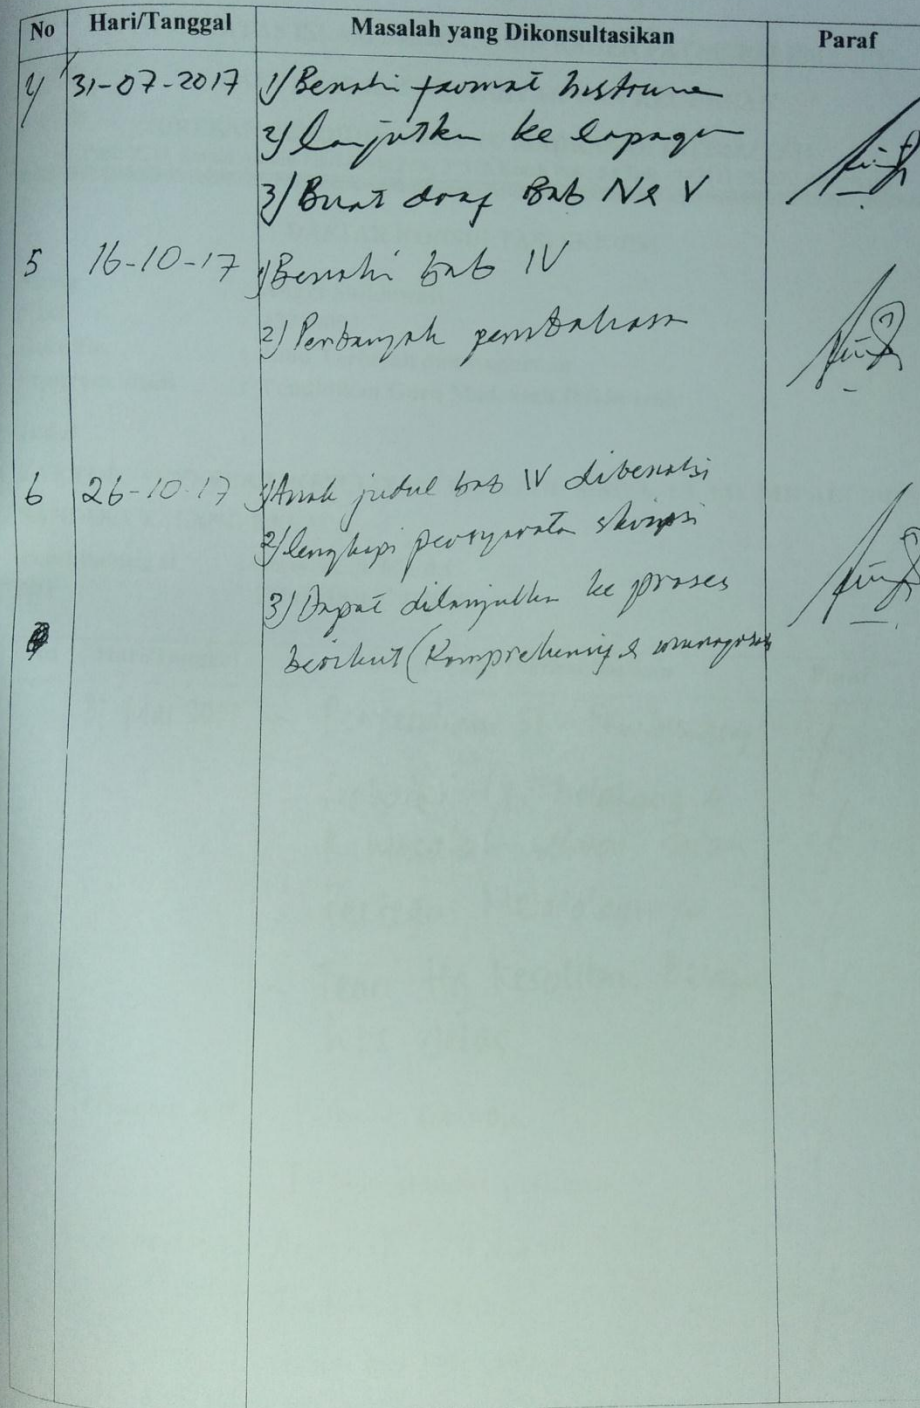 No Hari/Tanggal Masalah yang Dikonsultasikan Paraf
4 31-07-2017 1) Benahi format Instrumen
2) lanjutkan ke lapangan
3) Buat draf Bab IV & V
5 16-10-17 1) Benahi bab IV
2) Perbanyak pembahasan
6 26-10-17 1) Anak judul bab IV dibenahi
2) lengkapi persyaratan skripsi
3) Dapat dilanjutkan ke proses
berikut (Komprehensif & munaqosah